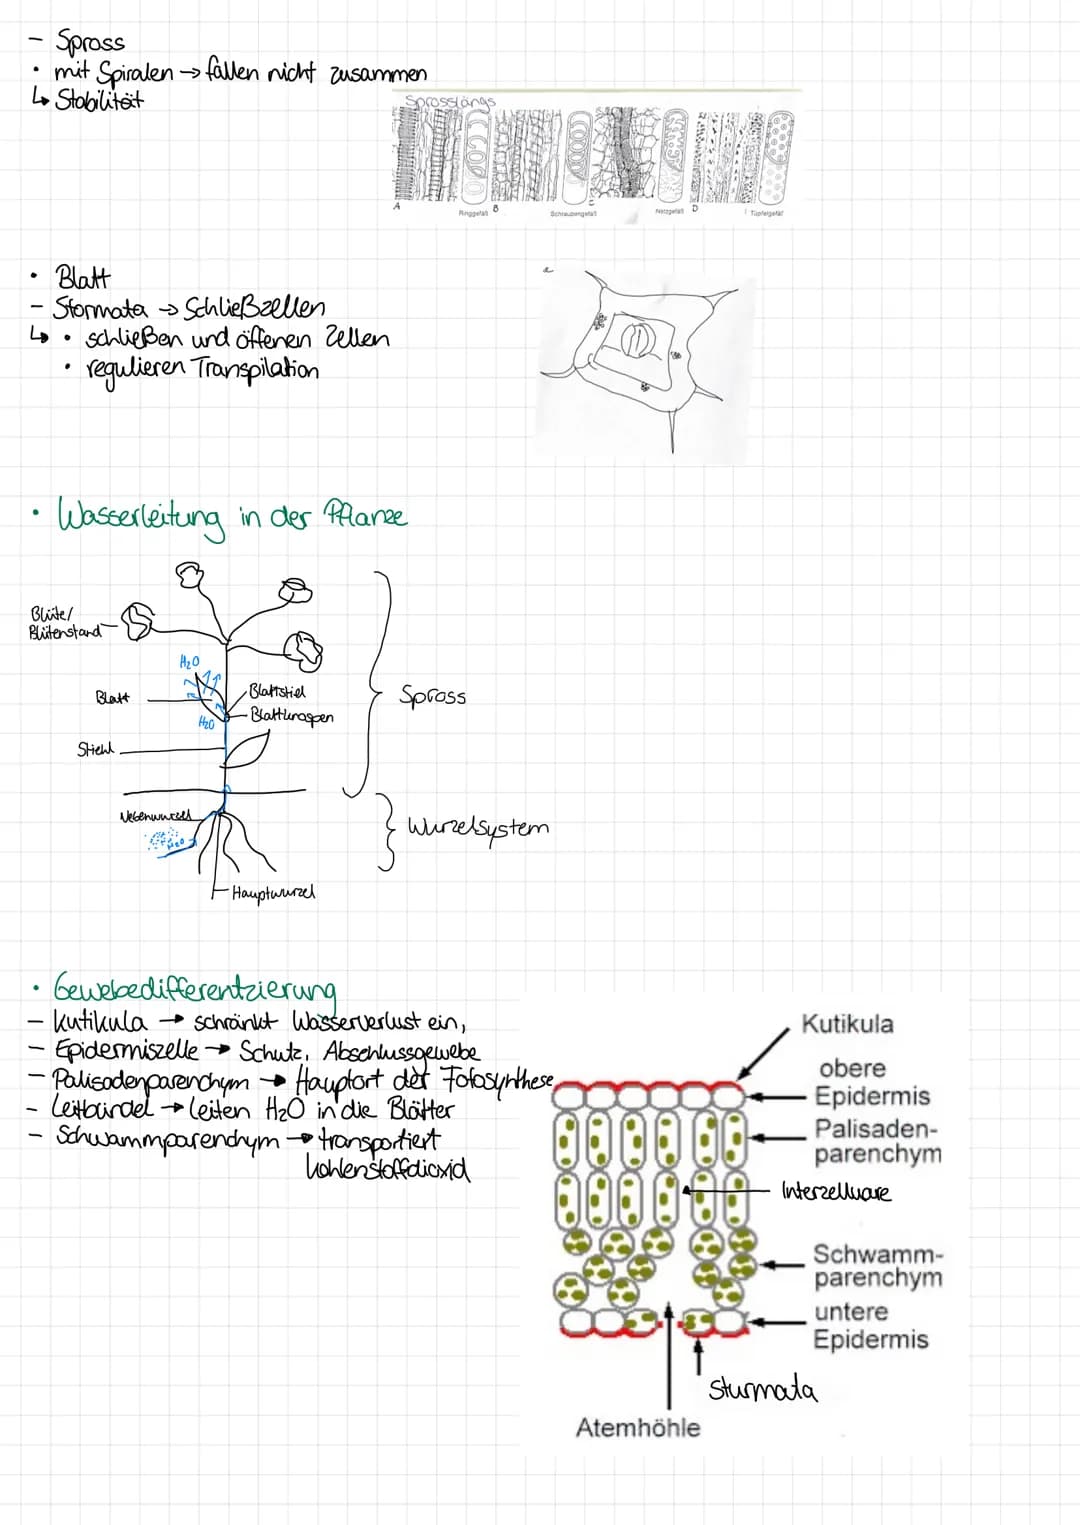 - Spross
• mit Spiralen → fallen nicht zusammen
↳ Stabilität
Sprosslängs
A
Ringgefäß
B
Schraubengefäß
Netzgefäß
D
Tüpfelgefäß
• Blatt
- Stormata → Schließzellen
↳ • schließen und öffenen Zellen
• regulieren Transpilation
• Wasserleitung in der Pflanze
Blüte/
Blütenstand
H₂O
Blatt
Blattstiel
Blattknospen
H₂O
Stiehl
Spross
Nebenwurzel
H₂O
Wurzelsystem
Hauptwurzel
• Gewebedifferentzierung
- Kutikula → schränkt Wasserverlust ein,
- Epidermiszelle → Schutz, Abschlussgewebe
- Palisadenparenchym → Hauptort der Fotosynthese
- Leitbündel → Leiten H₂O in die Blätter
- Schwammparenchym → transportiert
kohlenstoffdioxid
Kutikula
obere
Epidermis
Palisaden-
parenchym
Interzellulare
Schwamm-
parenchym
untere
Epidermis
Sturmata
Atemhöhle